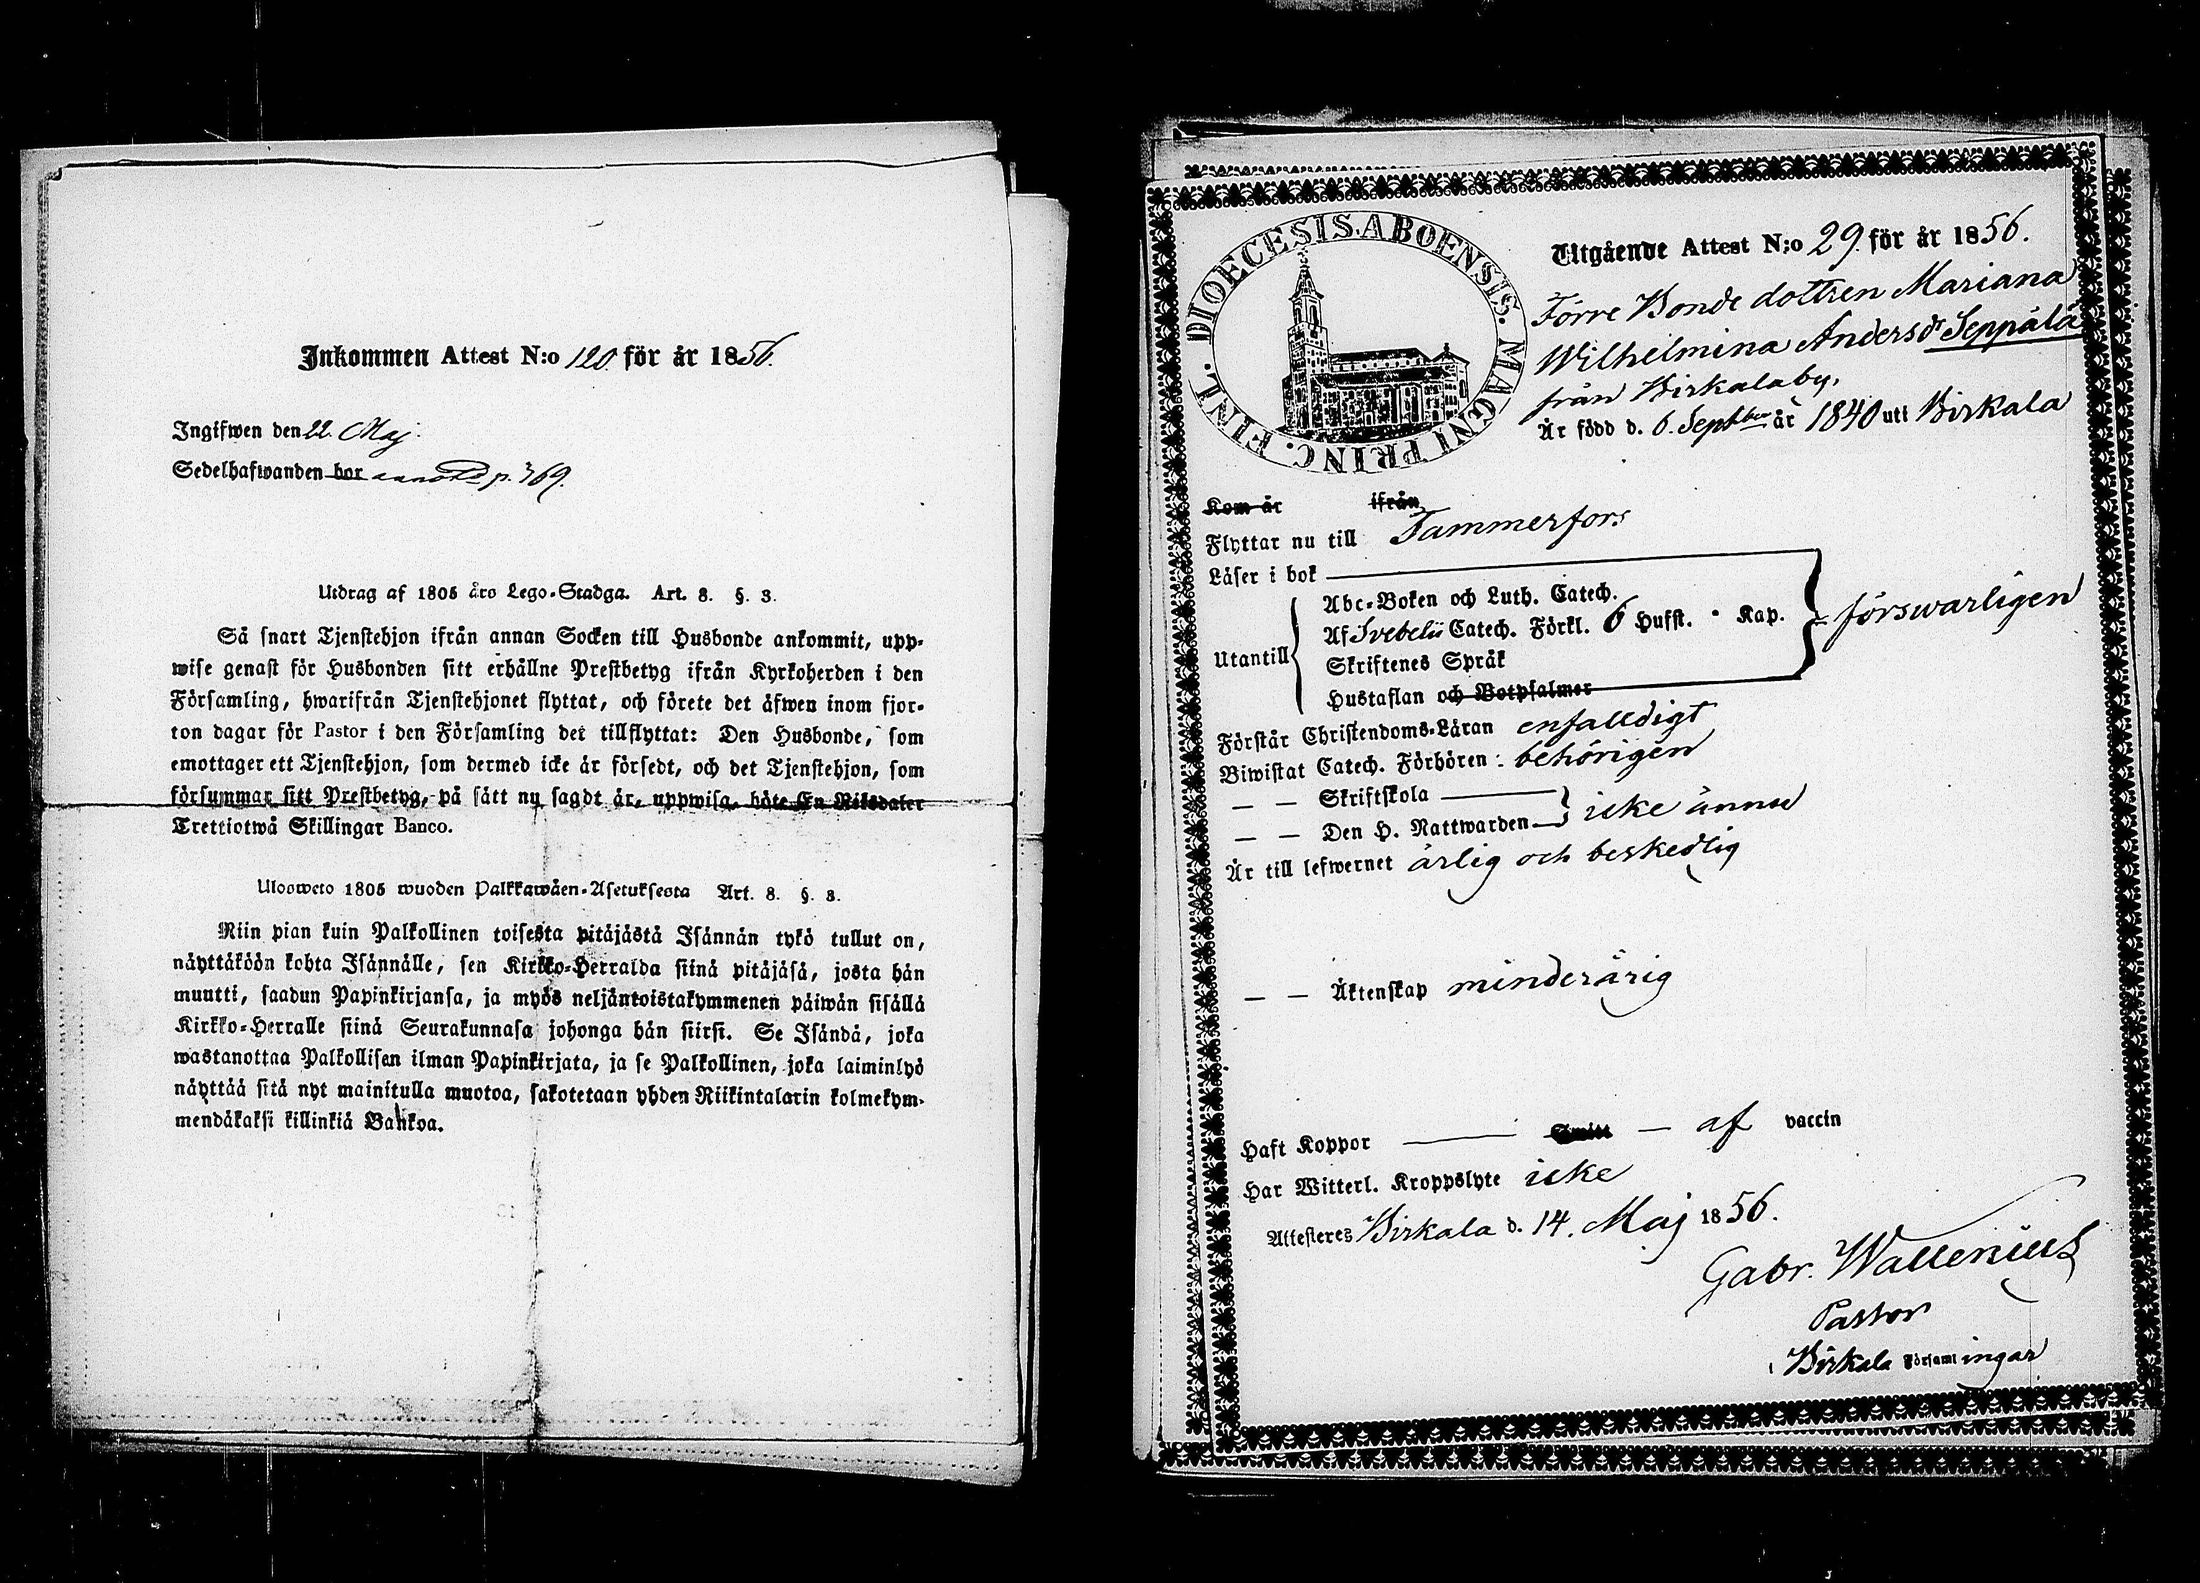 Inkommen Attest N:o 120 för år 1856.
Ingifwen den 22. Maj.
Sedelhafwanden bor annoterad p. 369.
Utdrag af 1805 års Lego-Stadga. Art. 8. §. 3.
Så snart Tjenstehjon ifrån annan Socken till Husbonde ankommit, upp-
wise genast för Husbonden sitt erhållne Prestbetyg ifrån Kyrkoherden i den
Församling, hwarifrån Tjenstehjonet flyttat, och förete det äfwen inom fjor-
ton dagar för Pastor i den Församling det tillflyttat: Den Husbonde, som
emottager ett Tjenstehjon, som dermed icke är försedt, och det Tjenstehjon, som
försummar sitt Prestbetyg, på sätt nu sagdt är, uppwisa, böte En Riksdaler
Trettiotwå Skillingar Banco.
Ulosweto 1805 wuoden Palkkawäen-Asetuksesta Art. 8. §. 3.
Niin pian kuin Palkollinen toisesta pitäjästä Isännän tykö tullut on,
näyttäköön kohta Isännälle, sen Kirkko-Herralda siinä pitäjäsä, josta hän
muutti, saadun Papinkirjansa, ja myös neljäntoistakymmenen päiwän sisällä
Kirkko-Herralle siinä Seurakunnasa johonga hän siirsi. Se Isändä, joka
wastanottaa Palkollisen ilman Papinkirjata, ja se Palkollinen, joka laiminlyö
näyttää sitä nyt mainitulla muotoa, sakotetaan yhden Riikintalarin kolmekym-
mendäkaksi killinkiä Bankoa.
DIOECESIS. ABOENSIS. MAGNI PRINC. FINL.
Utgående Attest N:o 29. för år 1856.
Förre Bonde dottren Mariana
Wilhelmina Andersdr Seppälä
från Birkalaby,
Är född d. 6. Septber år 1840 uti Birkala
Kom år ifrån
Flyttar nu till Tammerfors
Läser i bok
Abc-Boken och Luth. Catech.
Utantill Af Svebelii Catech. Förkl. 6 Hufst. " Kap. försvarligen
Skriftenes Språk
Hustaflan och Botpsalmer
Förstår Christendoms-Läran enfaldigt
Biwistat Catech. Förhören: behörigen
— — Skriftskola
— — Den H. Nattwarden icke ännu
Är till lefwernet ärlig och beskedlig
— — Äktenskap minderårig
Haft Koppor — Smitt — af vaccin
Har Witterl. Kroppslyte icke
Attesteres Birkala d. 14. Maj 1856.
Gabr. Wallenius
Pastor
Birkala Församlingar